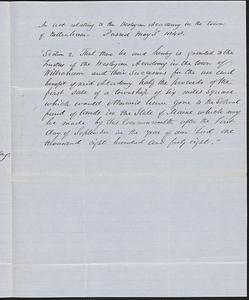 An act relating to the Wesleyan Academy in the Town
of Wilbraham. Passed May 1848.
Section 2. That there be and hereby is granted to the
Trustees of the Wesleyan Academy in the town of
Wilbraham and their Successors for the use and
benefit of said Academy half the proceeds of the
first sale of a township of six miles square
which would otherwise have gone to the School
fund of lands in the State of Maine which may
be made by this Commonwealth after the first
day of September in the year of our Lord one
thousand eight hundred and forty eight."